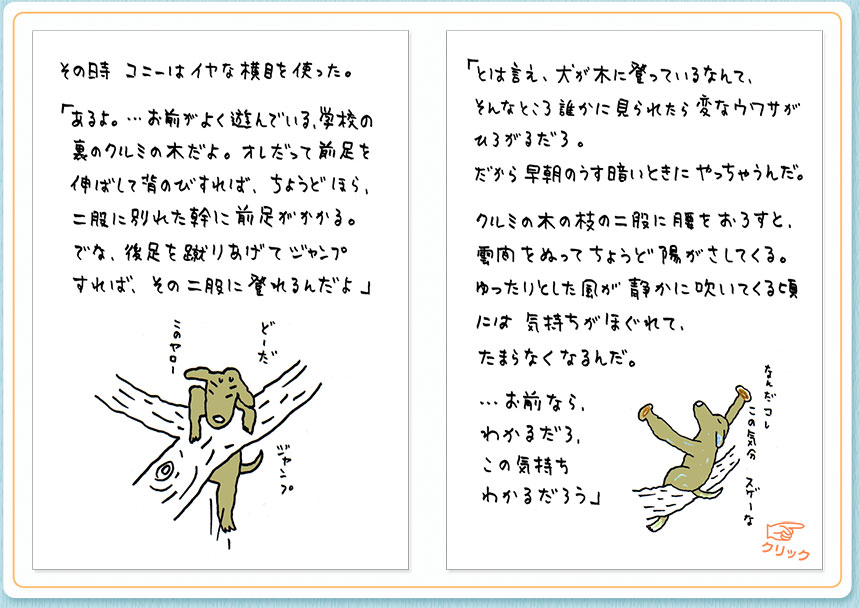 その時 コニーはイヤな横目を使った。
「あるよ。…お前がよく遊んでいる、学校の
裏のクルミの木だよ。オレだって前足を
伸ばして背のびすれば、ちょうどほら、
二股に別れた幹に前足がかかる。
でな、後足を蹴りあげてジャンプ
すれば、その二股に登れるんだよ」
このヤロー
どーだ
ジャンプ
「とは言え、犬が木に登っているなんて、
そんなところ誰かに見られたら変なウワサが
ひろがるだろ。
だから早朝のうす暗いときにやっちゃうんだ。
クルミの木の枝の二股に腰をおろすと、
雲間をぬってちょうど陽がさしてくる。
ゆったりとした風が静かに吹いてくる頃
には 気持ちがほぐれて、
たまらなくなるんだ。
…お前なら、
わかるだろ、
この気持ち
わかるだろう」
なんだコレ
この気分
スゲーな
クリック